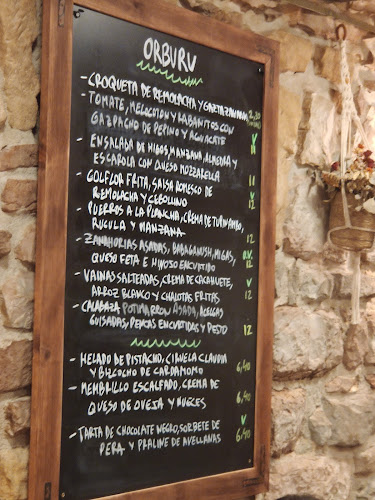 ORBURU
- CROQUETA DE REMOLACHA Y
2,20
- TOMATE, MELOCOTON Y RABANITOS CON
GAZPACHO DE PEPINO Y AGUACATE
V
11
- ENSALADA DE HIGOS, MANZANA, ALMENDRA Y
ESCAROLA CON QUESO MOZZARELLA
11
- GOLFLOR FRITA, SALSA ROMESCO DE
REMOLACHA Y CEBOLLINO
V
12
- PUERROS A LA PLANCHA, CREMA DE TUPINAMBO,
RUCULA Y MANZANA
12
- ZANAHORIAS ASADAS, BABAGANUSH, MIGAS,
QUESO FETA E HINOJO ENCURTIDO
O.V.
12
- VAINAS SALTEADAS, CREMA DE CACAHUETE,
ARROZ BLANCO Y CHALOTAS FRITAS
V
12
- CALABAZA POTIMARRON ASADA, ACELGAS
GUISADAS, PENCAS ENCURTIDAS Y PESTO
12
- HELADO DE PISTACHO, CIRUELA CLAUDIA
Y BIZCOCHO DE CARDAMOMO
6,40
- MEMBRILLO ESCALFADO, CREMA DE
QUESO DE OVEJA Y NUECES
6,40
- TARTA DE CHOCOLATE NEGRO, SORBETE DE
PERA Y PRALINE DE AVELLANAS
V
6,40